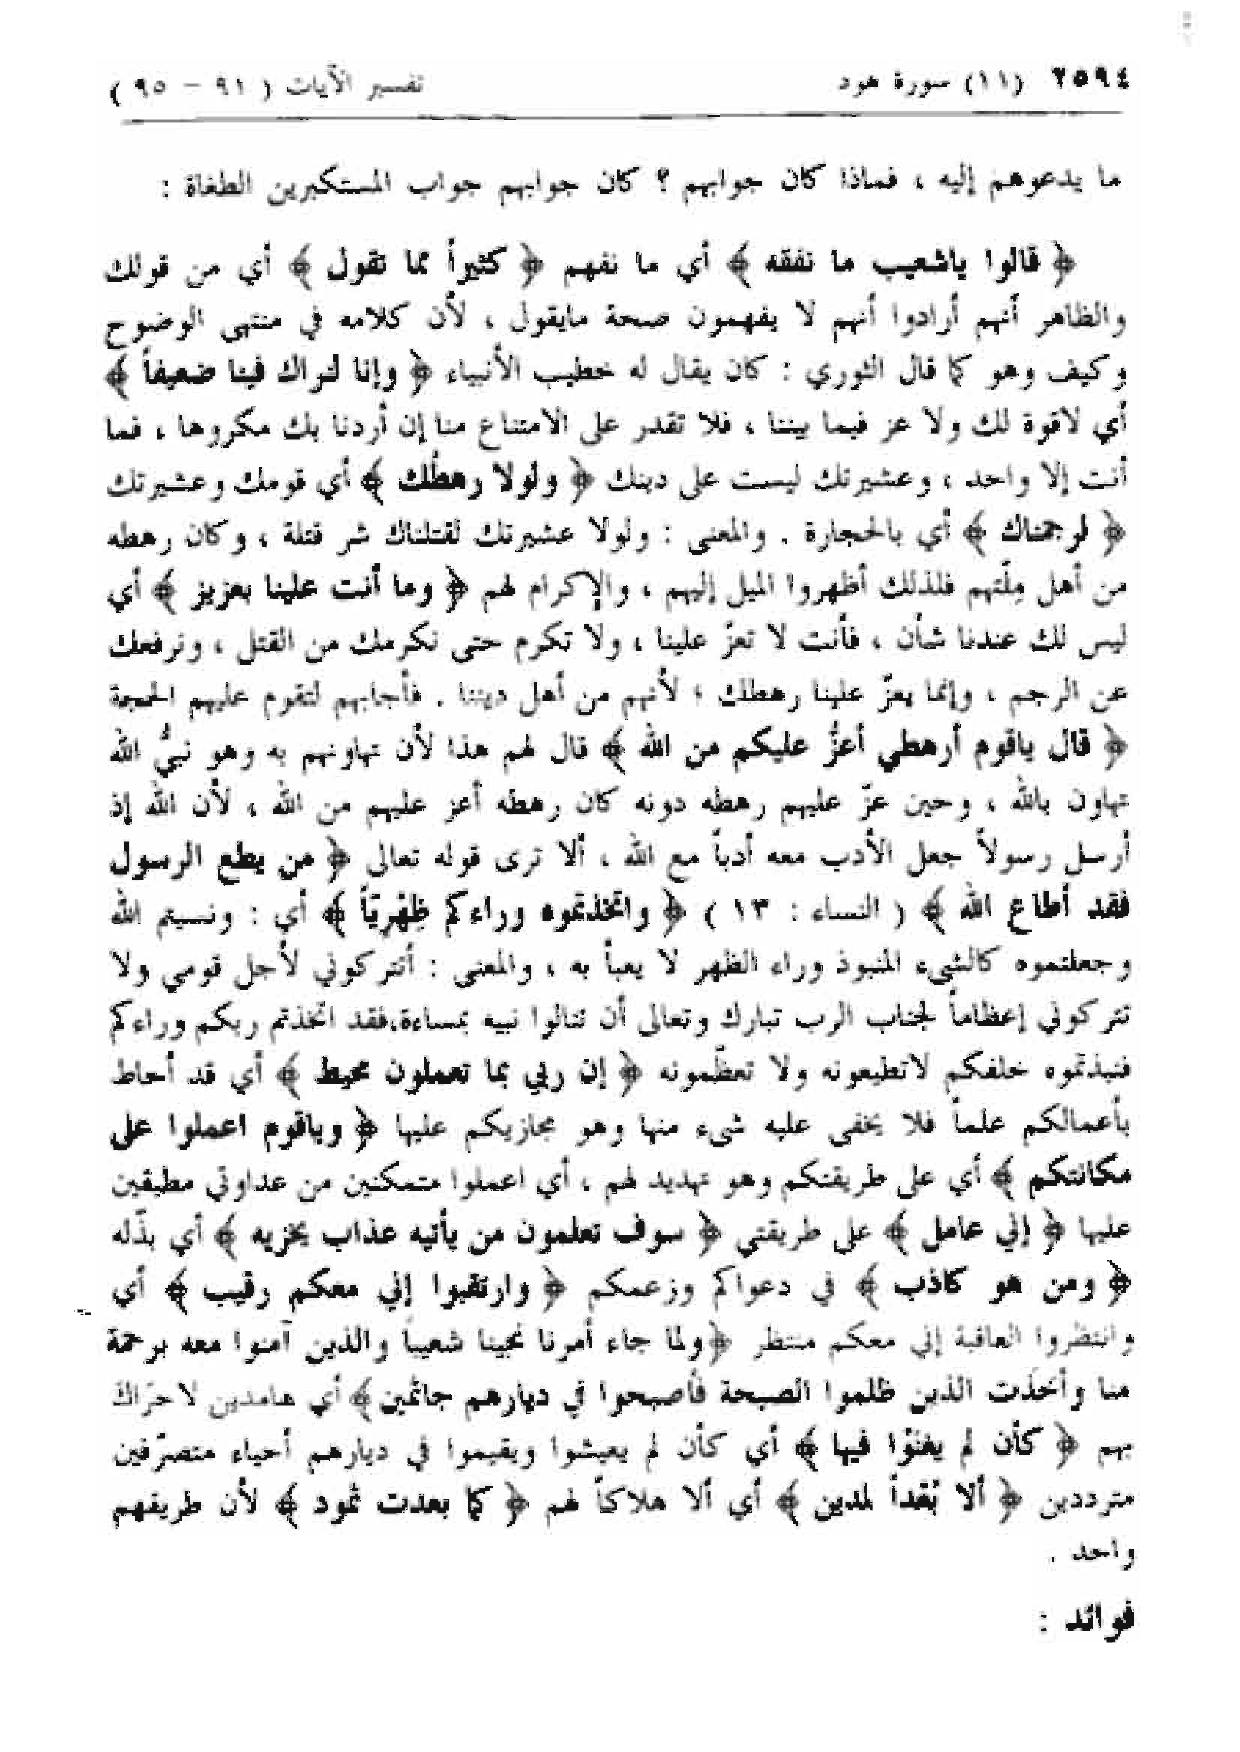 ٢٥٩٤ (١١) سورة هود تفسير الآيات ( ٩١ – ٩٥ )
ما يدعوهم إليه ، فماذا كان جوابهم ؟ كان جوابهم جواب المستكبرين الطغاة :
﴿ قالوا ياشعيب ما نفقه ﴾ أي ما نفهم ﴿ كثيراً مما تقول ﴾ أي من قولك
والظاهر أنهم أرادوا أنهم لا يفهمون صحة مايقول ، لأن كلامه في منتهى الوضوح
وكيف وهو كما قال الثوري : كان يقال له خطيب الأنبياء ﴿ وإنا لنراك فينا ضعيفاً ﴾
أي لاقوة لك ولا عز فيما بيننا ، فلا تقدر على الامتناع منا إن أردنا بك مكروها ، فما
أنت إلا واحد ، وعشيرتك ليست على دينك ﴿ ولولا رهطُك ﴾ أي قومك وعشيرتك
﴿ لرجمناك ﴾ أي بالحجارة . والمعنى : ولولا عشيرتك لقتلناك شر قتلة ، وكان رهطه
من أهل مِلّتهم فلذلك أظهروا الميل إليهم ، والإكرام لهم ﴿ وما أنت علينا بعزيز ﴾ أي
ليس لك عندنا شأن ، فأنت لا تعزّ علينا ، ولا تكرم حتى نكرمك من القتل ، ونرفعك
عن الرجم ، وإنما يعزّ علينا رهطك ؛ لأنهم من أهل ديننا . فأجابهم لتقوم عليهم الحجة
﴿ قال ياقوم أرهطي أعزُّ عليكم من الله ﴾ قال لهم هذا لأن تهاونهم به وهو نبيُّ الله
تهاون بالله ، وحين عزّ عليهم رهطه دونه كان رهطه أعز عليهم من الله ، لأن الله إذ
أرسل رسولاً جعل الأدب معه أدباً مع الله ، ألا ترى قوله تعالى ﴿ من يطع الرسول
فقد أطاع الله ﴾ ( النساء : ١٣ ) ﴿ واتخذتموه وراءكم ظِهْرِيّاً ﴾ أي : ونسيتم الله
وجعلتموه كالشيء المنبوذ وراء الظهر لا يعبأ به ، والمعنى : أتتركوني لأجل قومي ولا
تتركوني إعظاماً لجناب الرب تبارك وتعالى أن تنالوا نبيه بمساءة،فقد اتخذتم ربكم وراءكم
فنبذتموه خلفكم لاتطيعونه ولا تعظّمونه ﴿ إن ربي بما تعملون محيط ﴾ أي قد أحاط
بأعمالكم علماً فلا يخفى عليه شيء منها وهو مجازيكم عليها ﴿ وياقوم اعملوا على
مكانتكم ﴾ أي على طريقتكم وهو تهديد لهم ، أي اعملوا متمكنين من عداوتي مطبقين
عليها ﴿ إني عامل ﴾ على طريقتي ﴿ سوف تعلمون من يأتيه عذاب يخزيه ﴾ أي يذّله
﴿ ومن هو كاذب ﴾ في دعواكم وزعمكم ﴿ وارتقبوا إني معكم رقيب ﴾ أي
وانتظروا العاقبة إني معكم منتظر ﴿ولما جاء أمرنا نجينا شعيباً والذين آمنوا معه برحمة
منا وأخذت الذين ظلموا الصيحة فأصبحوا في ديارهم جاثمين﴾ أي هامدين لاحرّاك
بهم ﴿ كأن لم يغنَوْا فيها ﴾ أي كأن لم يعيشوا ويقيموا في ديارهم أحياء متصرّفين
مترددين ﴿ ألا بُعْداً لمدين ﴾ أي ألا هلاكاً لهم ﴿ كما بعدت ثمود ﴾ لأن طريقهم
واحد .
فوائد :